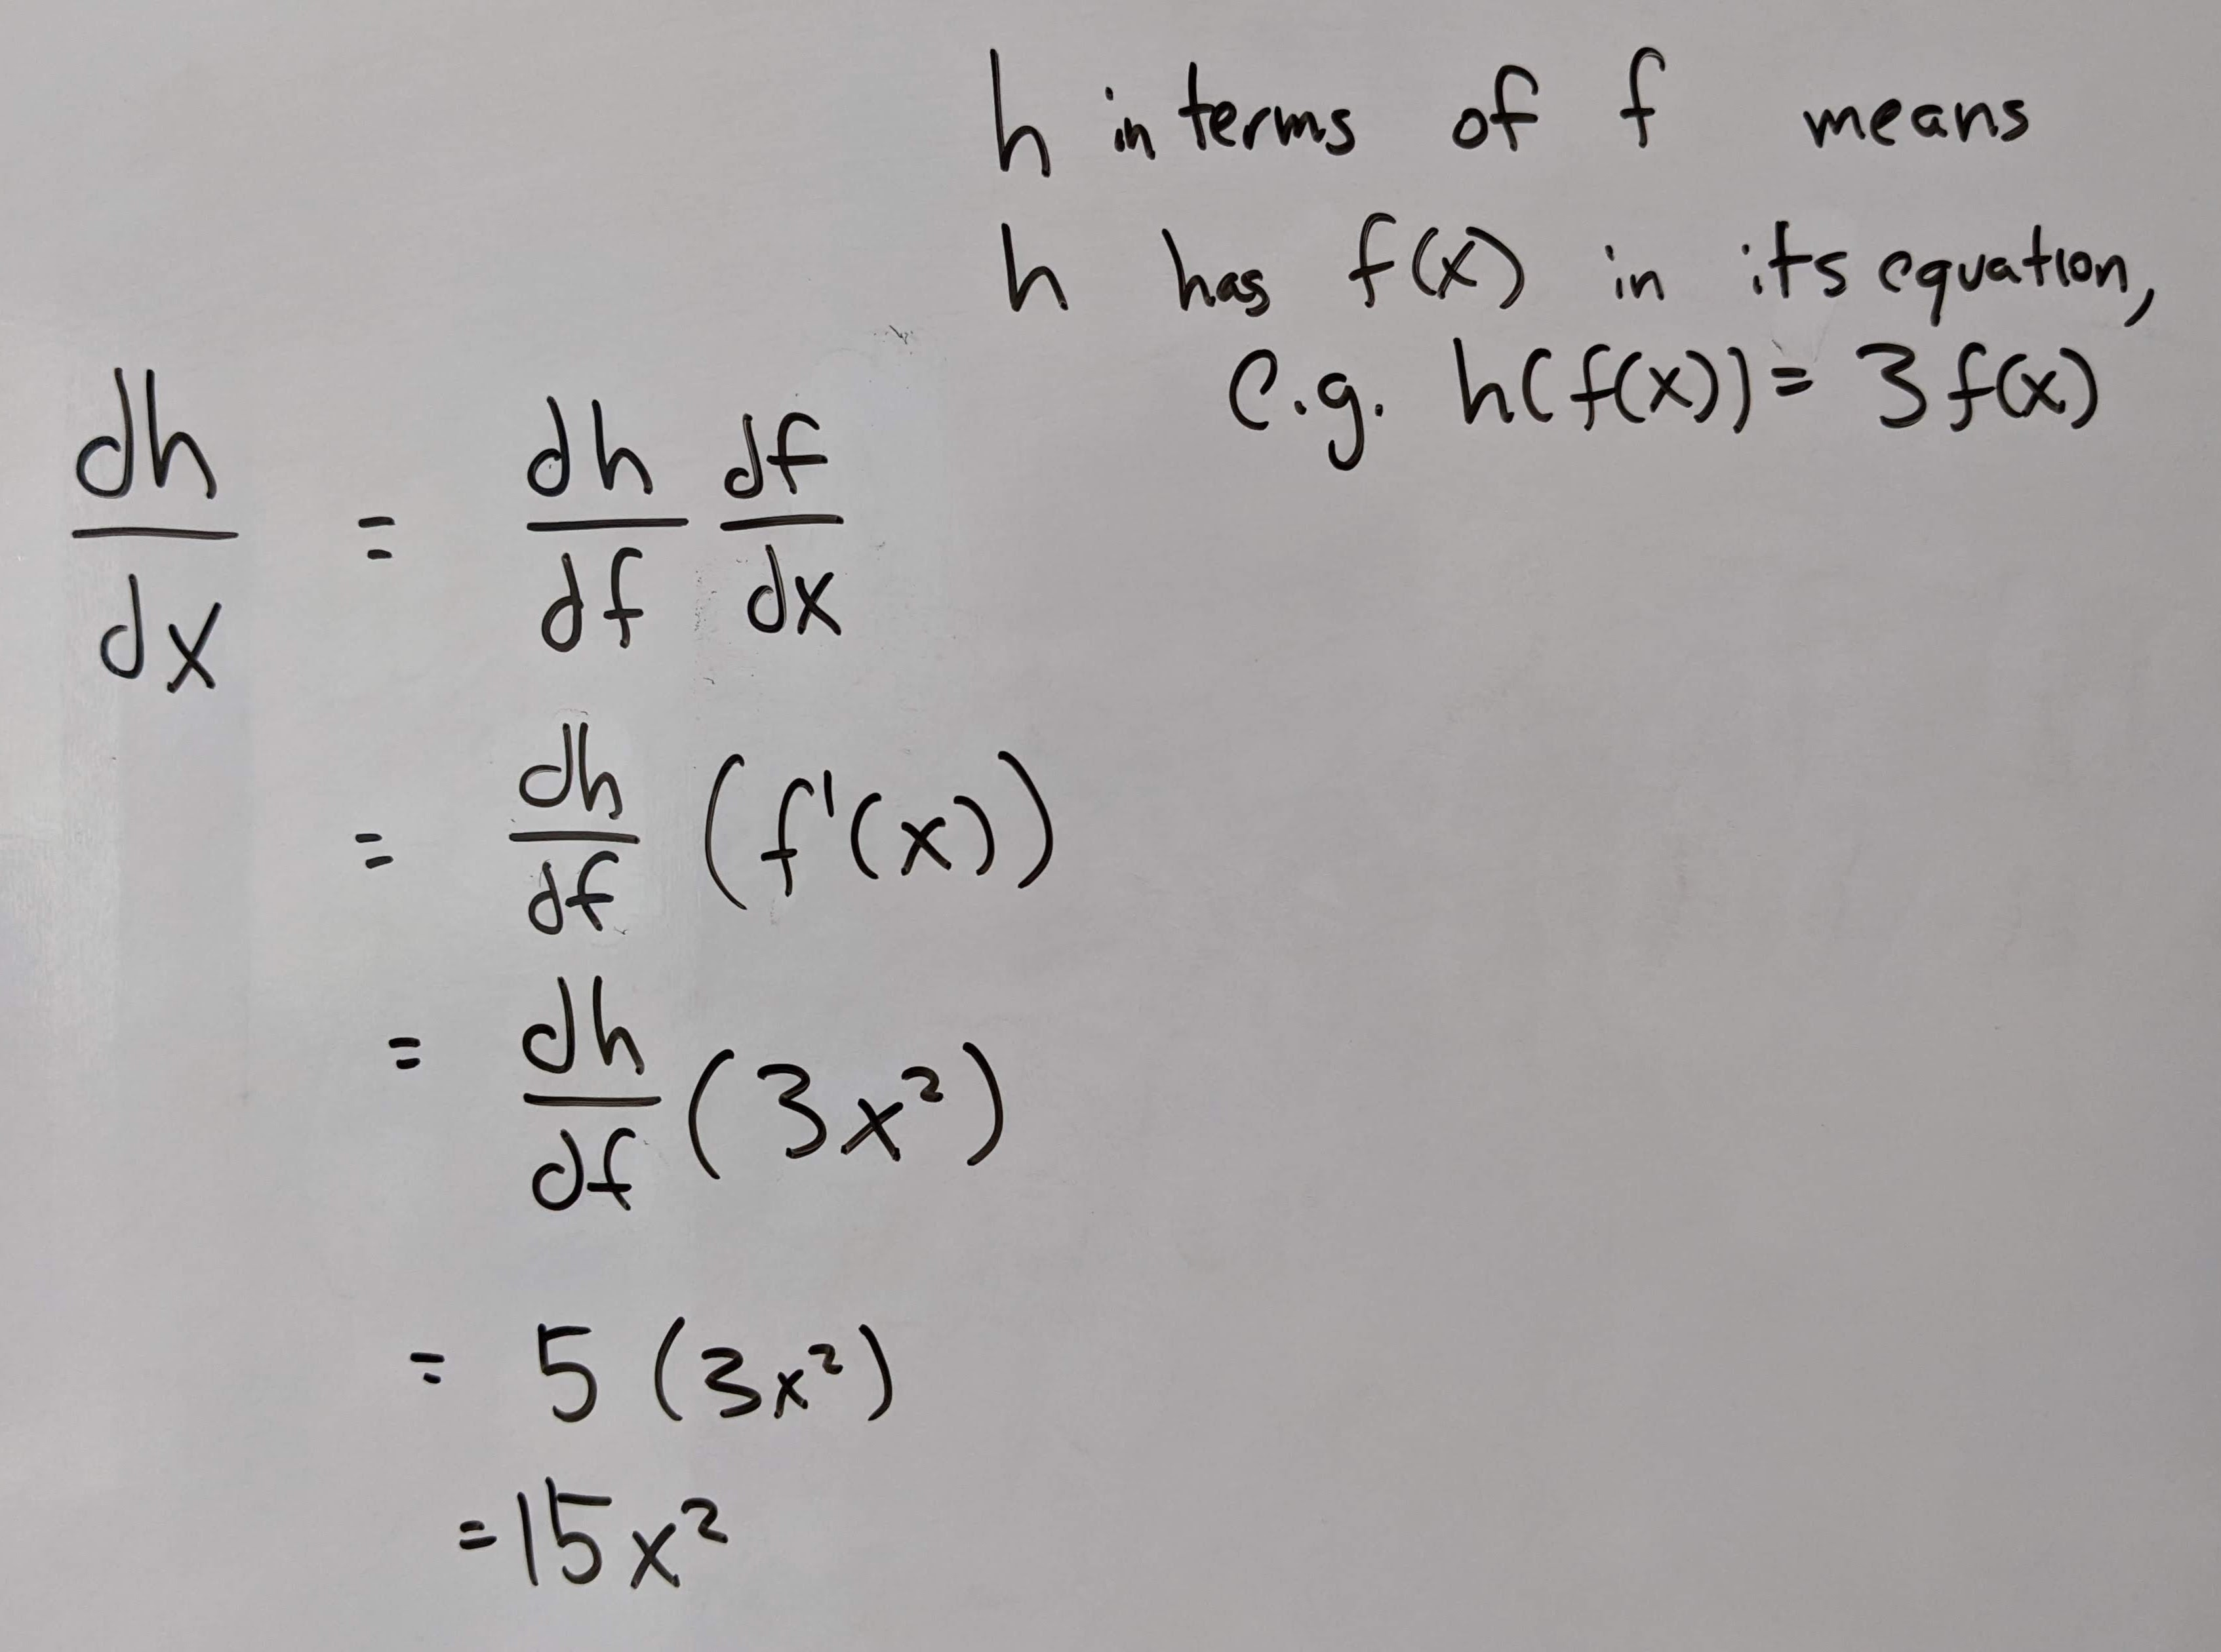 h in terms of f means
h has f(x) in its equation,
e.g. h(f(x)) = 3f(x)
dh/dx = dh/df df/dx
= dh/df (f'(x))
= dh/df (3x²)
= 5 (3x²)
= 15x²